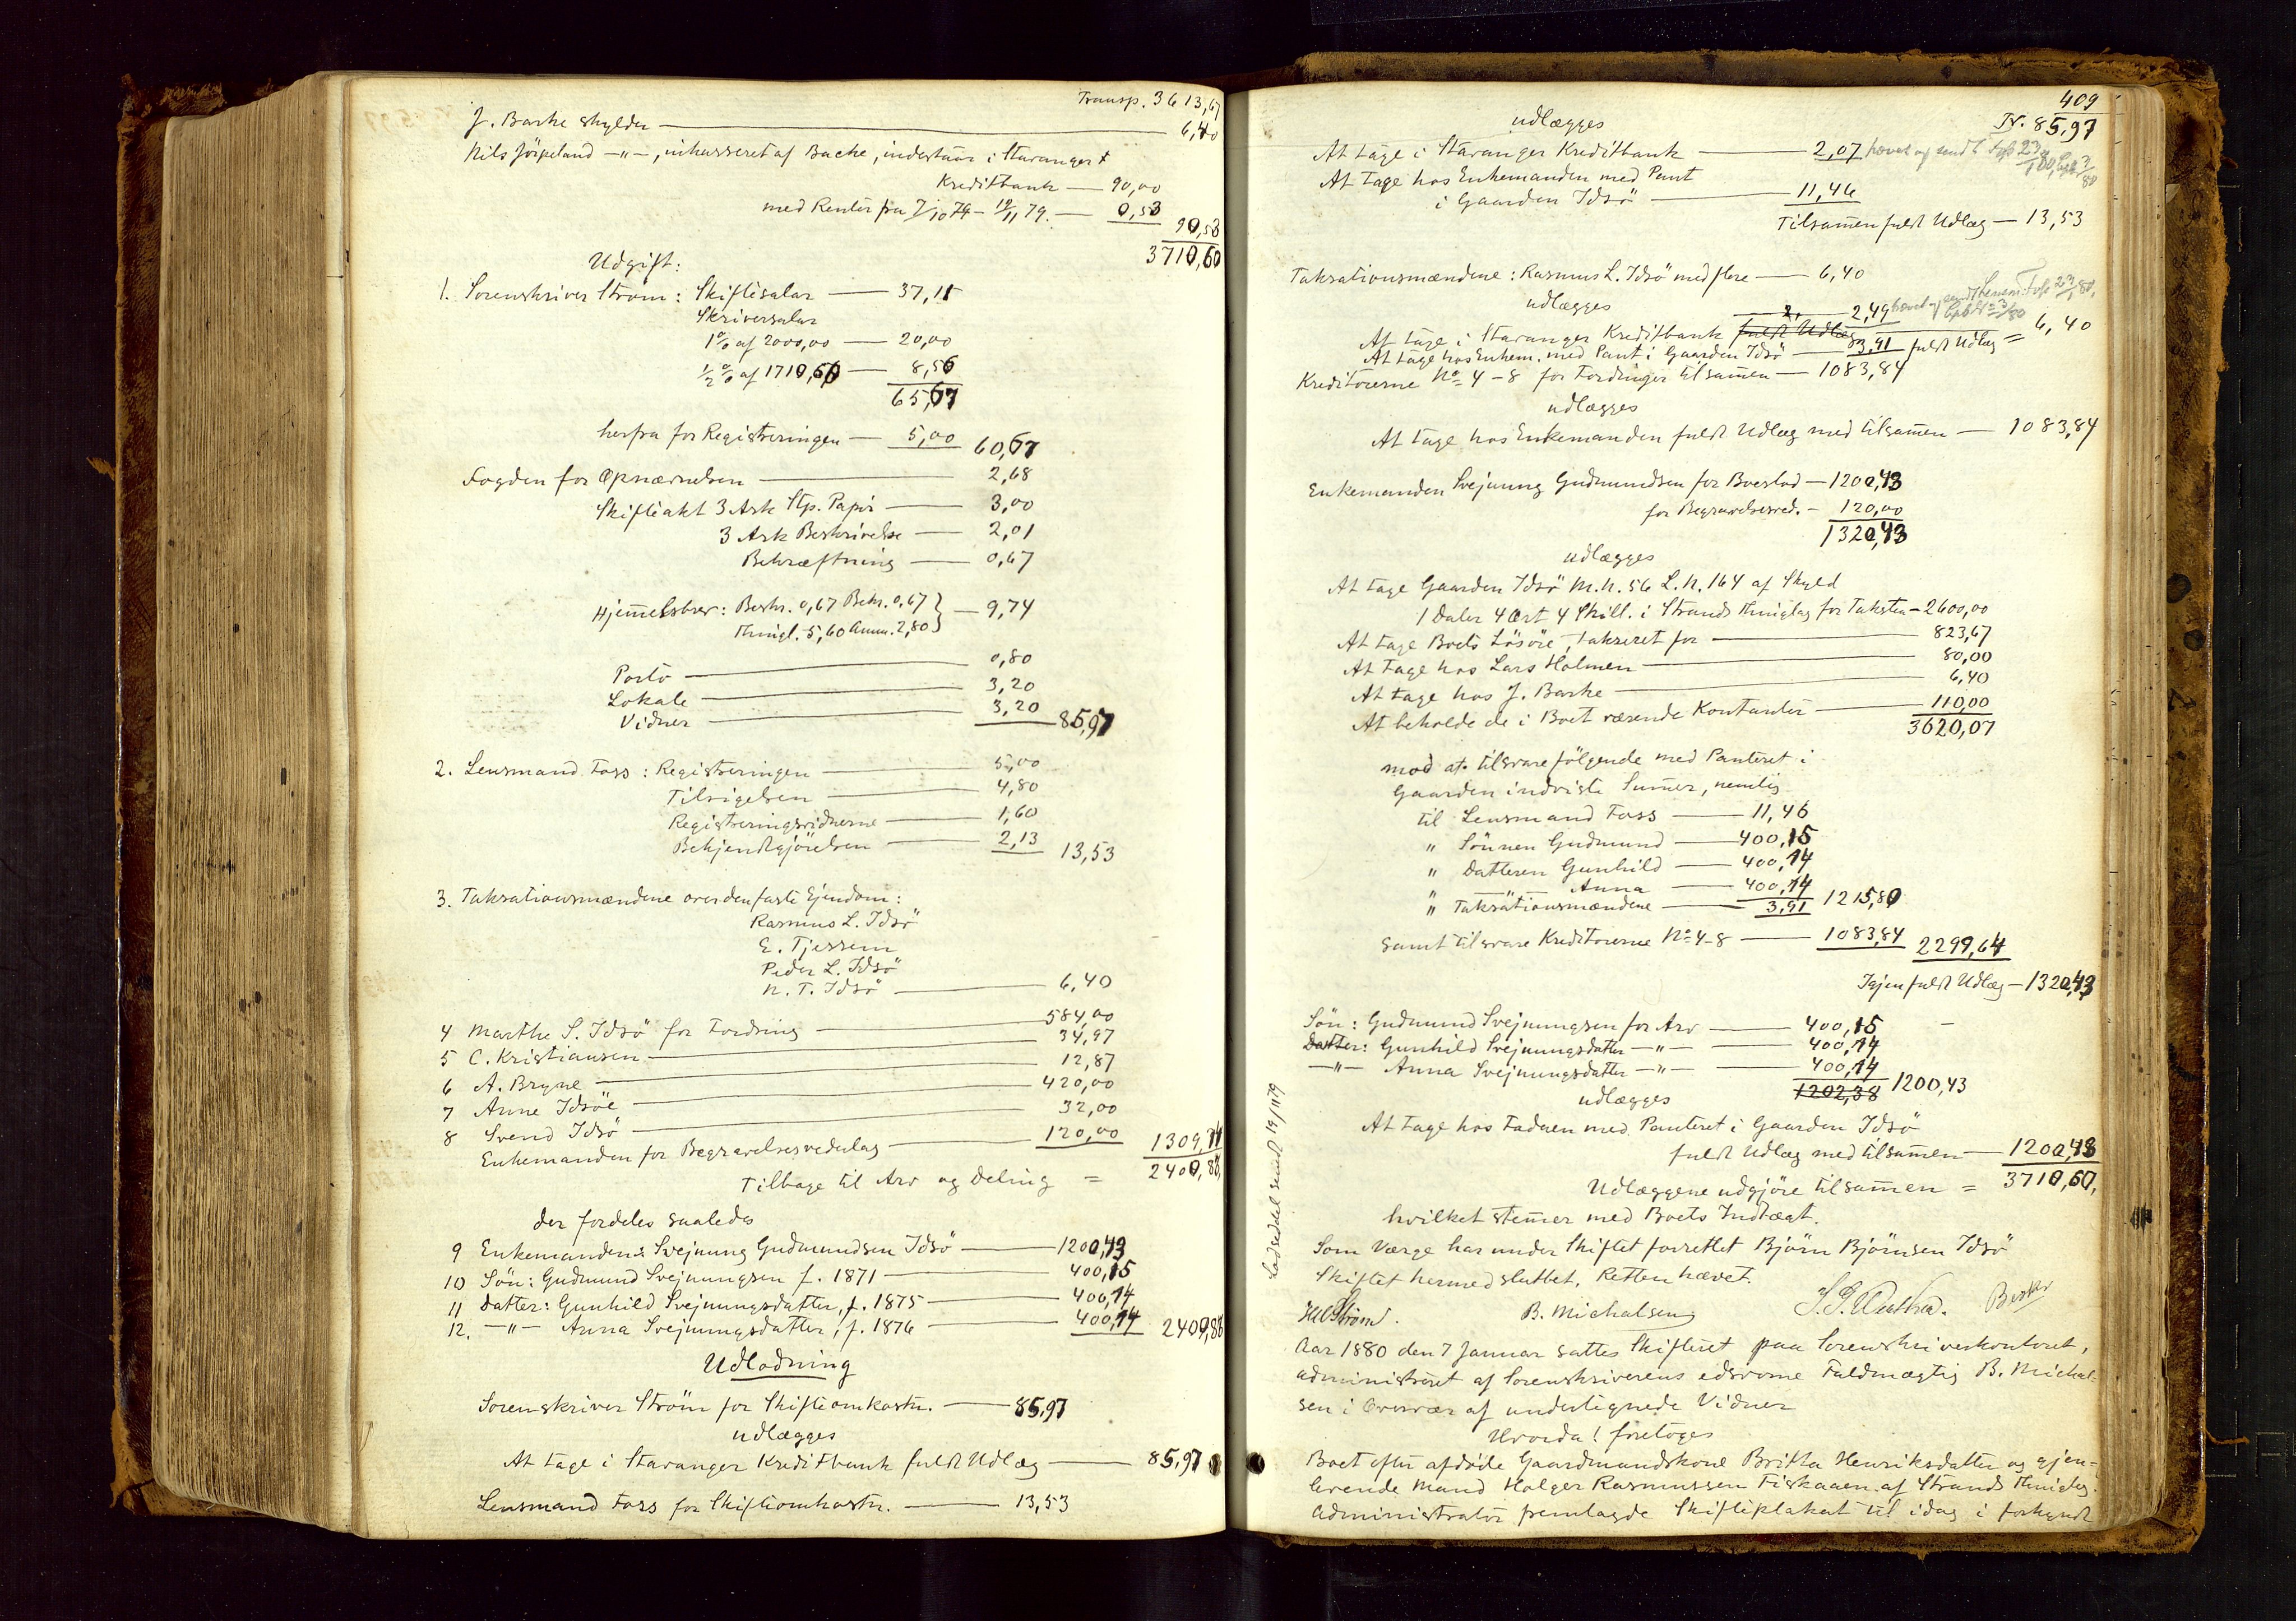 Transp. 3613,67
J. Barke skylder — 6,40
Nils Jörpeland —"—, inkasseret af Bache, indestaar i Stavanger
Kreditbank — 90,00
med Renter fra 7/10 79 – 19/11 79. — 0,53
90,53
3710,60
Udgift:
1. Sorenskriver Ström: Skiftesalar — 37,11
Skriversalar
1 % af 2000,00 — 20,00
½ % af 1710,60 — 8,56
65,67
herfra for Registreringen — 5,00 60,67
Fogden for Opnævnelsen — 2,68
Skifteakt 3 Ark Stp. Papir — 3,00
3 Ark Beskrivelse — 2,01
Bekræftning — 0,67
Hjemmelsbrev: Beskr. 0,67 Bekr. 0,67 } — 9,74
Thingl. 5,60 Anm. 2,80
Porto — 0,80
Lokale — 3,20
Vidner — 3,20 85,97
2. Lensmand Foss: Registreringen — 5,00
Tilsigelsen — 4,80
Registreringsvidnerne — 1,60
Bekjendtgjörelsen — 2,13 13,53
3. Taksationsmændene over den faste Ejendom:
Rasmus L. Idsö
E. Tjessem
Peder L. Idsö
N. T. Idsö — 6,40
4 Marthe S. Idsö for Fordring — 584,00
5 C. Kristiansen — 34,97
6 A. Bryne — 12,87
7 Anne Idsöe — 420,00
8 Svend Idsö — 32,00
Enkemanden for Begravelsesvederlag — 120,00 1309,74
Tilbage til Arv og Deling = 2400,86
der fordeles saaledes
9 Enkemanden: Svejnung Gudmundsen Idsö — 1200,43
10 Sön: Gudmund Svejnungsen f. 1871 — 400,15
11 Datter: Gunhild Svejnungsdatter, f. 1875 — 400,14
12. —"— Anna Svejnungsdatter, f. 1876 — 400,14 2400,86
Udlodning
Sorenskriver Ström for Skifteomkostn. — 85,97
udlægges
At tage i Stavanger Kreditbank fuldt Udlæg — 85,97
Lensmand Foss for Skifteomkostn. — 13,53
409
Tr. 85,97
udlægges
At tage i Stavanger Kreditbank — 2,07 hævet og sendt Foss 23/1 80,
At tage hos Enkemanden med Pant
i Gaarden Idsö — 11,46
Tilsammen fuldt Udlæg — 13,53
Taksationsmændene: Rasmus L. Idsö med flere — 6,40
udlægges
At tage i Stavanger Kreditbank fuldt Udlæg — 2,49 hævet og sendt Foss 23/1 80,
= 6,40
At tage hos Enkem. med Pant i Gaarden Idsö — 3,91 fuldt Udlæg
Kreditorerne No 4–8 for Fordringer tilsammen — 1083,84
udlægges
At tage hos Enkemanden fuldt Udlæg med tilsammen — 1083,84
Enkemanden Svejnung Gudmundsen for Boeslod — 1200,43
for Begravelsesved. — 120,00
1320,43
udlægges
At tage Gaarden Idsö M. N. 56 L. N. 164 af Skyld
1 Daler 4 Ort 4 Skill. i Strands Thinglag for Taksten — 2600,00
At tage Boets Lösöre, takseret for — 823,67
At tage hos Lars Holmen — 80,00
At tage hos J. Barke — 6,40
At beholde de i Boet værende Kontanter — 110,00
3620,07
mod at tilsvare fölgende med Panteret i
Gaarden indviste Summer, nemlig
til Lensmand Foss — 11,46
" Sönnen Gudmund — 400,15
" Datteren Gunhild — 400,14
" —"— Anna — 400,14
" Taksationsmændene — 3,91 1215,80
samt tilsvare Kreditorerne No 4–8 — 1083,84 2299,64
Igjen fuldt Udlæg — 1320,43
Sön: Gudmund Svejnungsen for Arv — 400,15
Datter: Gunhild Svejnungsdatter —"— — 400,14
—"— Anna Svejnungsdatter —"— — 400,14
1202,38 1200,43
udlægges
At tage hos Faderen med Panteret i Gaarden Idsö
fuldt Udlæg med tilsammen — 1200,43
Udlæggene udgjöre tilsammen = 3710,60,
hvilket stemmer med Boets Indtægt.
Som Værge har under Skiftet forrettet Björn Björnsen Idsö
Skiftet hermed sluttet. Retten hævet.
Ström. B. Michalsen
Lodseddel sendt 19/11 79
Aar 1880 den 7 Januar sattes Skifteret paa Sorenskriverkontoret,
administreret af Sorenskriverens edsvorne Fuldmægtig B. Michal-
sen i Overvær af undertegnede Vidner
Hvorda! foretoges
Boet efter afdöde Gaardmandskone Britta Henriksdatter og gjen-
levende Mand Holger Rasmussen Fiskaaen af Strands Thinglag.
Administrator fremlagde Skifteplakat til idag i forkyndt